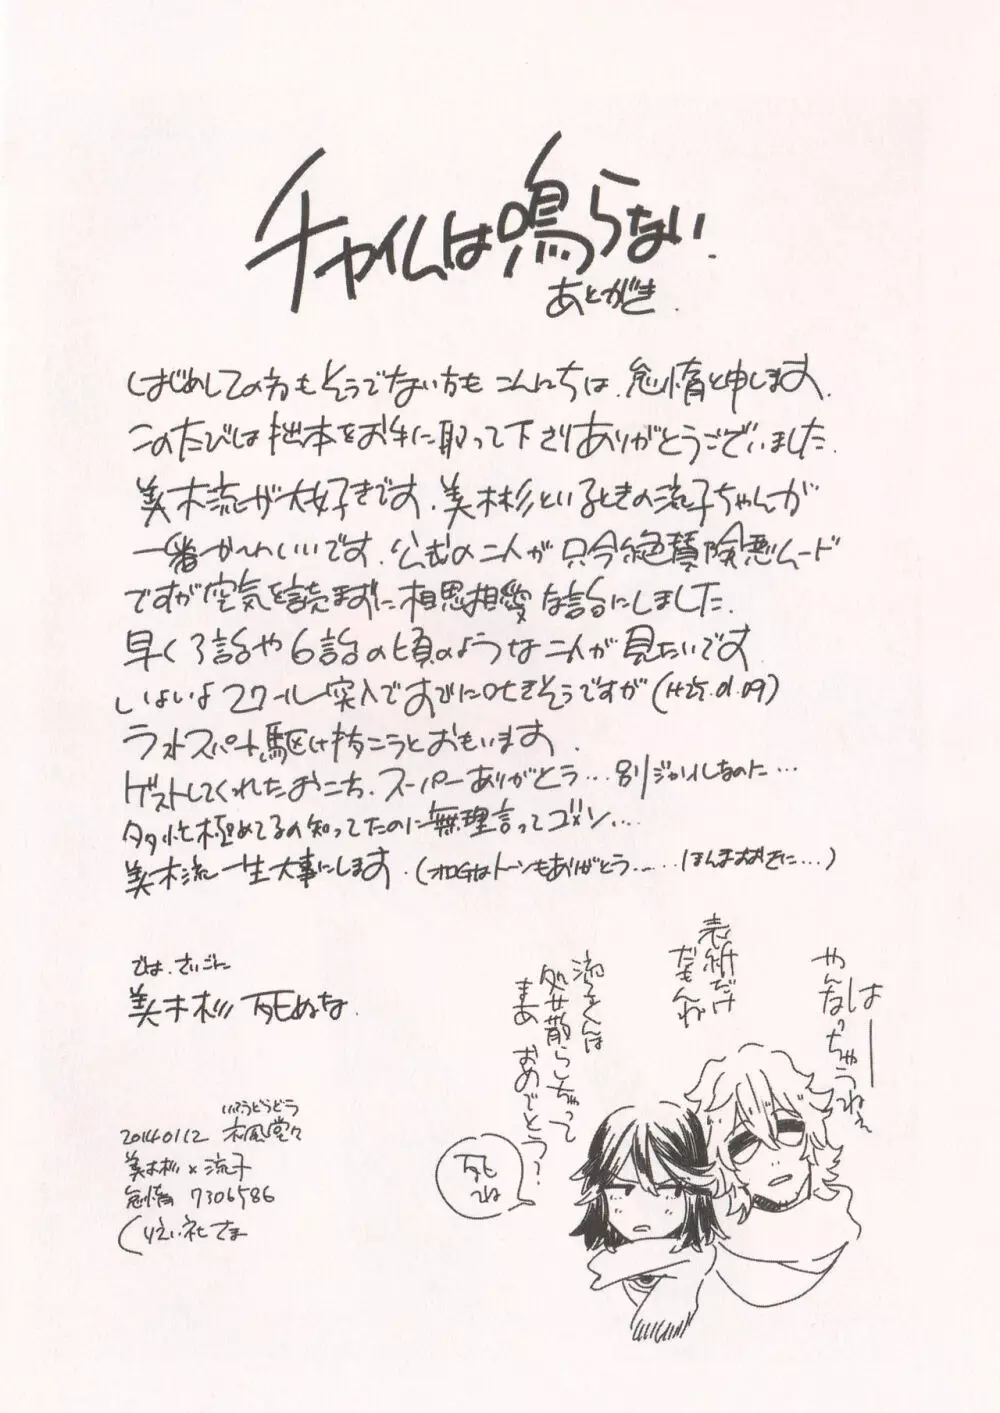 チャイムは鳴らない.
あとがき.
はじめしての方もそうでない方もこんにちは.怠惰と申します.
このたびは拙本をお手に取って下さりありがとうございました.
美木流が大好きです.美木杉といるときの流子ちゃんが
一番かわいいです.公式の二人が只今絶賛険悪ムード
ですが空気を読まずに相思相愛な話にしました.
早く3話や6話の頃のような二人が見たいです
いよいよ2クール突入ですでに吐きそうですが
ラストスパート駆け抜こうとおもいます.
ゲストしてくれたおこち、スーパーありがとう...別ジャンルなのに...
多忙極めてるの知ってたのに無理言ってゴメン...
美木流一生大事にします.
では.さいごに
美木杉死ぬな.
いっふうどうどう
20140112
美木杉×流子
怠惰 7306586
くりえい社さま
はーー
やんなっちゃうねえ
表紙だけ
だもんね
死ね